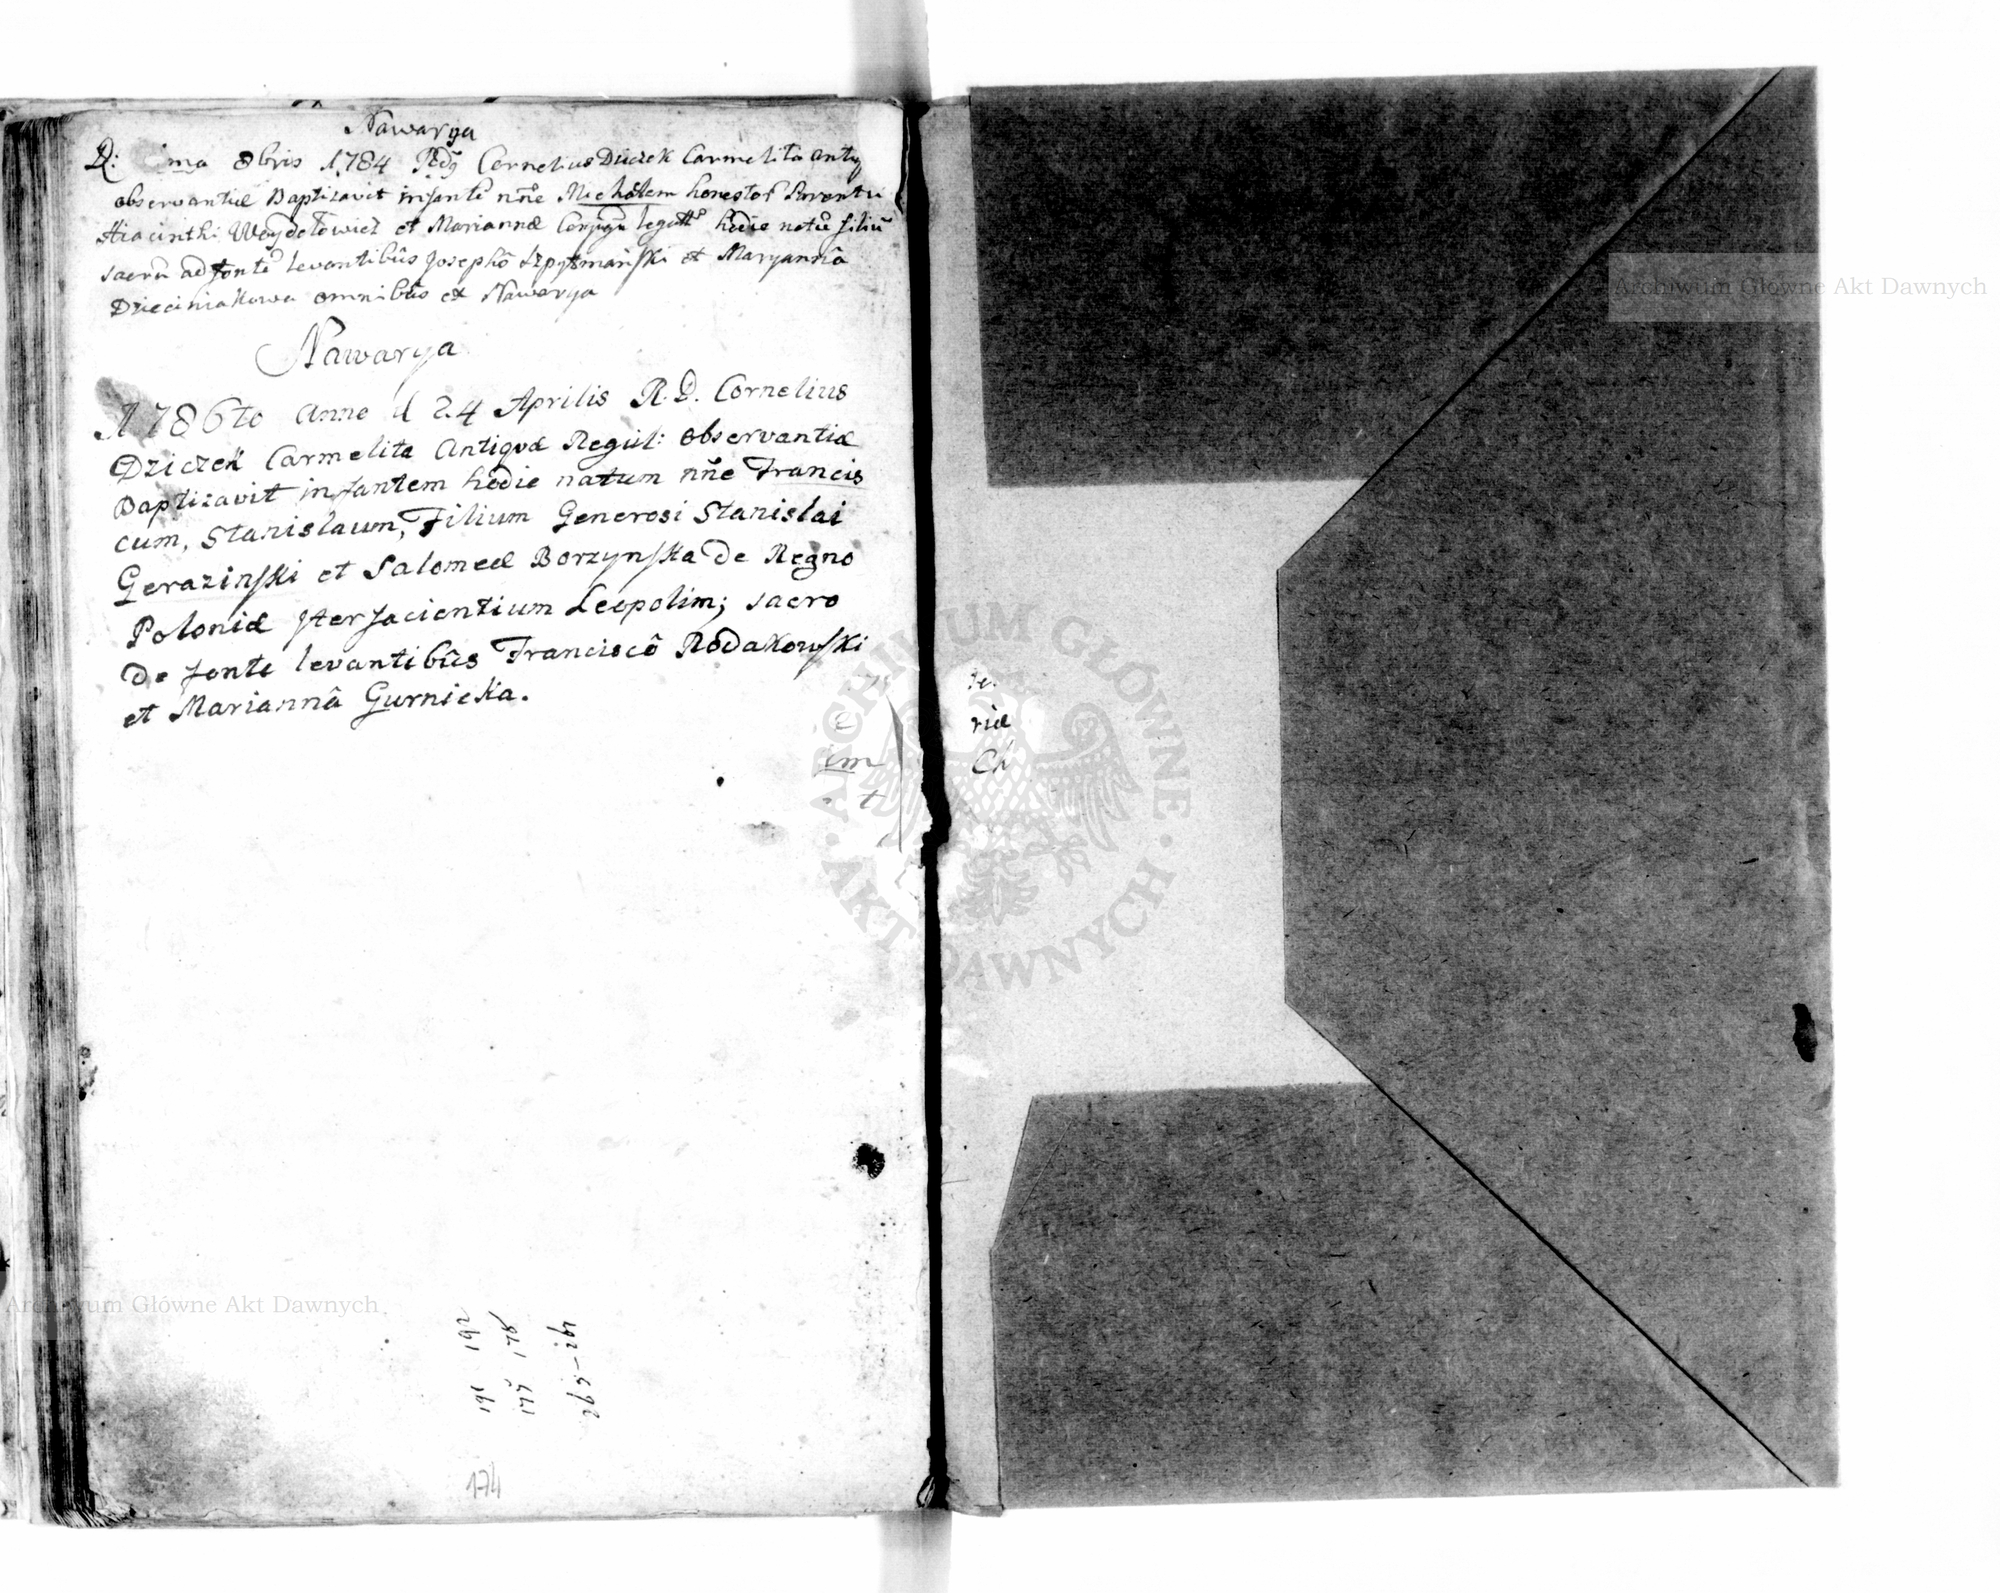 Nawarya
D: ima 8bris 1784 Rdꝰ Cornelius Dziczek Carmelita antiq
observantiæ Baptizavit infantē nn̄e Micháłem honestor
Hiacinthi Weydołowicz et Mariannæ Conjugū legittꝰ hodie natū filiū
sacrū ad fontē levantibûs Josephô Szpytmańſki et Maryannâ
Dzieciniakowa omnibûs ex Nawarya
Nawarya
1786to Anno d 24 Aprilis R. D. Cornelius
Dziczek Carmelita Antiquæ Regul: observantiæ
Baptizavit infantem hodie natum nn̄e Francis
cum, Stanislaum, Filium Generosi Stanislai
Gerazinſki et Salomeæ Borzynſka de Regno
Poloniæ Iter facientium Leopolim; sacro
de fonte levantibûs Franciscô Rodakowſki
et Mariannâ Gurnicka.
im
t
riæ
Ch
191 192
175 178
265-267
174
ARCHIWUM GŁÓWNE AKT DAWNYCH
Archiwum Główne Akt Dawnych
Archiwum Główne Akt Dawnych